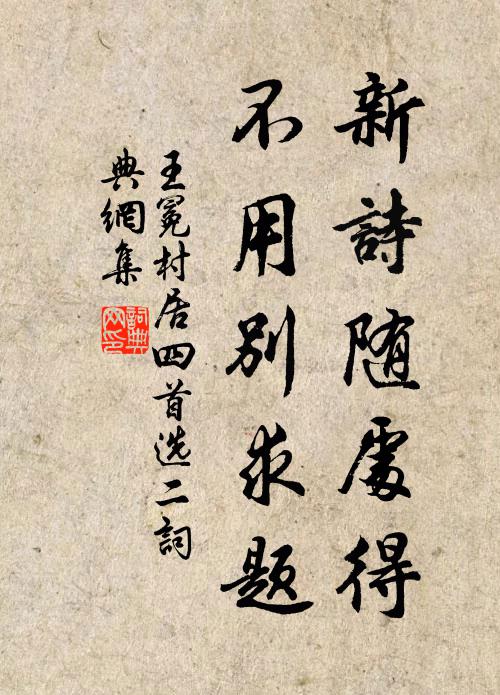 新詩随處得
不用别求题
王冕村居四首选二詞
典網集
詞典网印